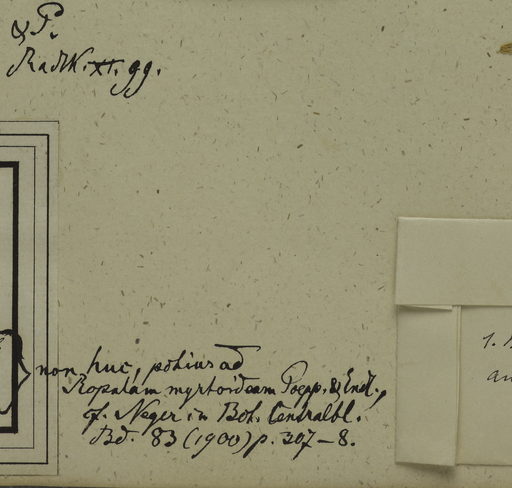 & P.
Radlk. XI. 99.
non huc, potius ad
Ropalam myrtoideam Poepp. & Endl.,
cf. Neger in Bot. Centralbl.
Bd. 83 (1900) p. 307–8.
1.